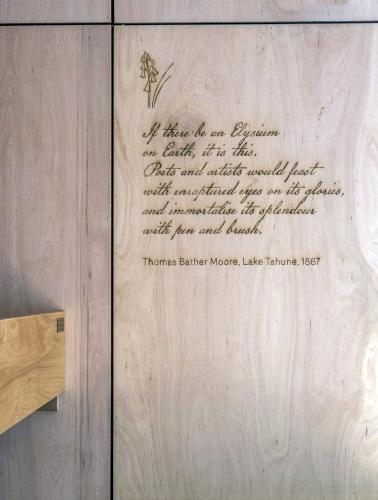 If there be an Elysium
on Earth, it is this.
Poets and artists would feast
with enraptured eyes on its glories,
and immortalise its splendour
with pen and brush.
Thomas Bather Moore, Lake Tahune, 1887